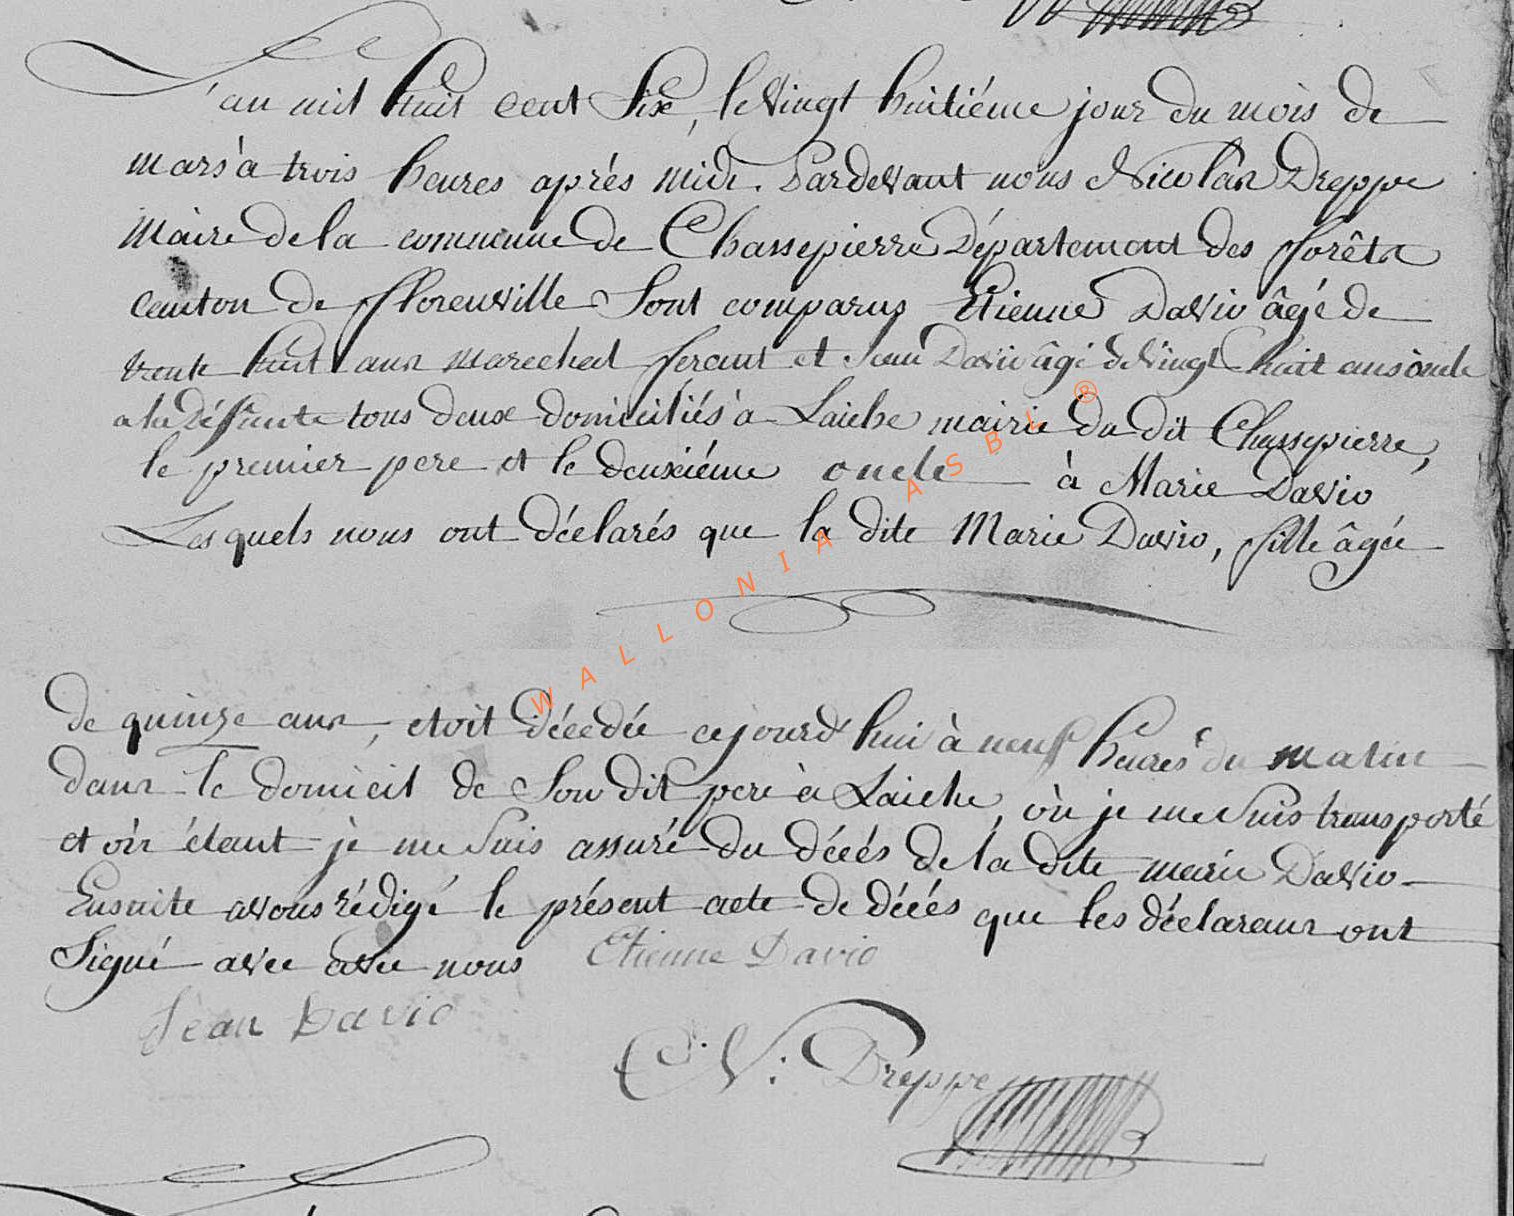 L'an mil huit cent Six, le Vingt huitiéme jour du mois de
mars à trois heures aprés midi. Pardevant nous Nicolas Dreppe
Maire de la commune de Chassepierre Département des fforêts
canton de fflorenville Sont comparus Etienne Davio âgé de
trente huit ans marechal ferant et Jean Davio âgé de Vingt huit ans oncle
a la déffunte tous deux domiciliés à Laiche mairie du dit Chassepierre,
le premier pere et le deuxiéme oncle à Marie Davio
Lesquels nous ont déclarés que la dite Marie Davio, fille âgée
de quinze ans, etoit décédée cejourd'hui à neuf heures du matin
dans le domicil de Son dit pere à Laiche, où je me Suis transporté
et où étant je me Suis assuré du décés de la dite marie Davio
Ensuite avons rédigé le présent acte de décés que les déclarans ont
Signé avec avec nous Etienne Davio
Jean Davio
N: Dreppe
WALLONIA ASBL ®